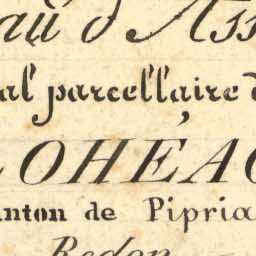 au d'Ass
al parcellaire d
LOHÉAC
anton de Pipria
Redon